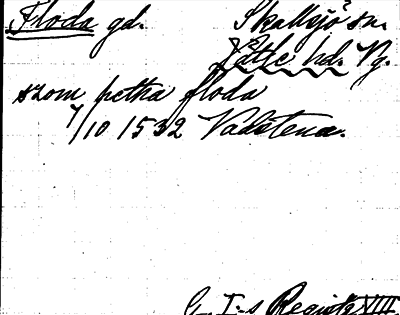 Floda gd. Skallsjö sn.
Vättle hd. Vg.
szom petha floda
7/10 1532 Vadstena.
G. I:s Registr. VIII.